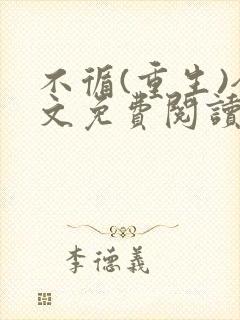 不循(重生)
文免費閱讀
李德義